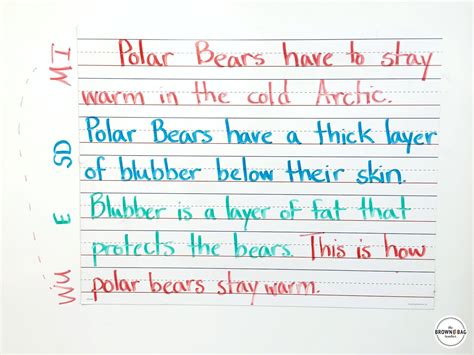 MI Polar Bears have to stay
warm in the cold Arctic.
SD Polar Bears have a thick layer
of blubber below their skin.
E Blubber is a layer of fat that
protects the bears. This is how
Wu polar bears stay warm.
the
BROWN BAG
teacher